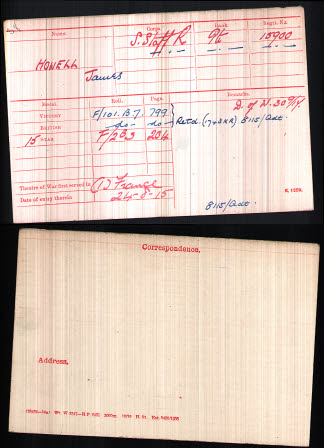 Name.
Corps.
Rank.
Regtl. No.
HOWELL
S. Staff R
Pte
15900
James
Medal.
Roll.
Page.
Remarks.
VICTORY
F/101. B7.
799
D. of W.
BRITISH
do
do
8115/Adt.
15 STAR
F/2B3
204
Theatre of War first served in
(1) France
Date of entry therein
24-8-15
8115/Adt.
K. 1380.
Correspondence.
Address.